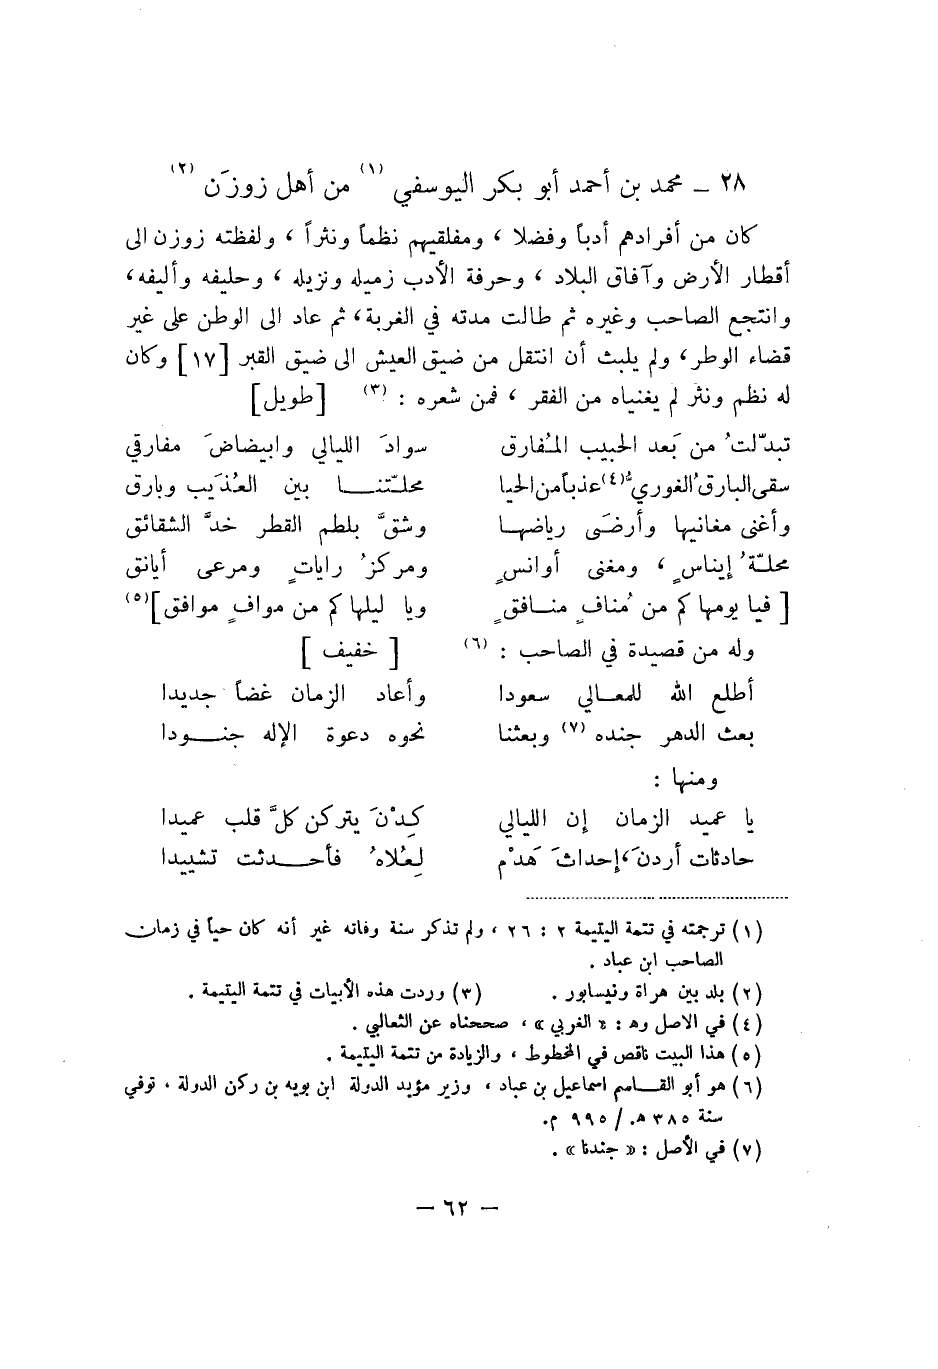 ٢٨ ــ محمد بن أحمد أبو بكر اليوسفي (١) من أهل زوزَن (٢)
كان من أفرادهم أدباً وفضلا ، ومفلقيهم نظماً ونثراً ، ولفظته زوزن الى
أقطار الأرض وآفاق البلاد ، وحرفة الأدب زميله ونزيله ، وحليفه وأليفه،
وانتجع الصاحب وغيره ثم طالت مدته في الغربة، ثم عاد الى الوطن على غير
قضاء الوطر، ولم يلبث أن انتقل من ضيق العيش الى ضيق القبر [١٧] وكان
له نظم ونثر لم يغنياه من الفقر ، فمن شعره : (٣) [طويل]
تبدّلتُ من بَعد الحبيب المُفارق سوادَ الليالي وابيضاضَ مفارقي
سقى البارقُ الغوريُّ(٤) عذباً من الحيا محلـّتنـــا بين العُذَيب وبارق
وأغنى مغانيها وأرضَى رياضهـا وشقَّ بلطم القطر خدَّ الشقائق
محلـّةُ إيناسٍ ، ومغنى أوانسٍ ومركزُ راياتٍ ومرعى أيانق
[ فيا يومها كم من مُنافٍ منــافقٍ ويا ليلها كم من موافٍ موافق](٥)
وله من قصيدة في الصاحب : (٦) [ خفيف ]
أطلع الله للمعــالي سعودا وأعاد الزمان غضاً جديدا
بعث الدهر جنده (٧) وبعثنا نحوه دعوة الإله جنــودا
ومنها :
يا عميد الزمان إن الليالي كِدْنَ يتركن كلَّ قلب عميدا
حادثات أردنَ، إحداثَ هَدْم لِعُلاهُ فأحـــدثت تشييدا
(١) ترجمته في تتمة اليتيمة ٢ : ٢٦ ، ولم تذكر سنة وفاته غير أنه كان حياً في زمان
الصاحب ابن عباد .
(٢) بلد بين هراة ونيسابور . (٣) وردت هذه الأبيات في تتمة اليتيمة .
(٤) في الاصل وهـ : « الغربي » ، صححناه عن الثعالبي .
(٥) هذا البيت ناقص في المخطوط ، والزيادة من تتمة اليتيمة .
(٦) هو أبو القـــاسم اسماعيل بن عباد ، وزير مؤيد الدولة ابن بويه بن ركن الدولة ، توفي
سنة ٣٨٥ هـ. / ٩٩٥ م.
(٧) في الأصل : « جندنا » .
– ٦٢ –